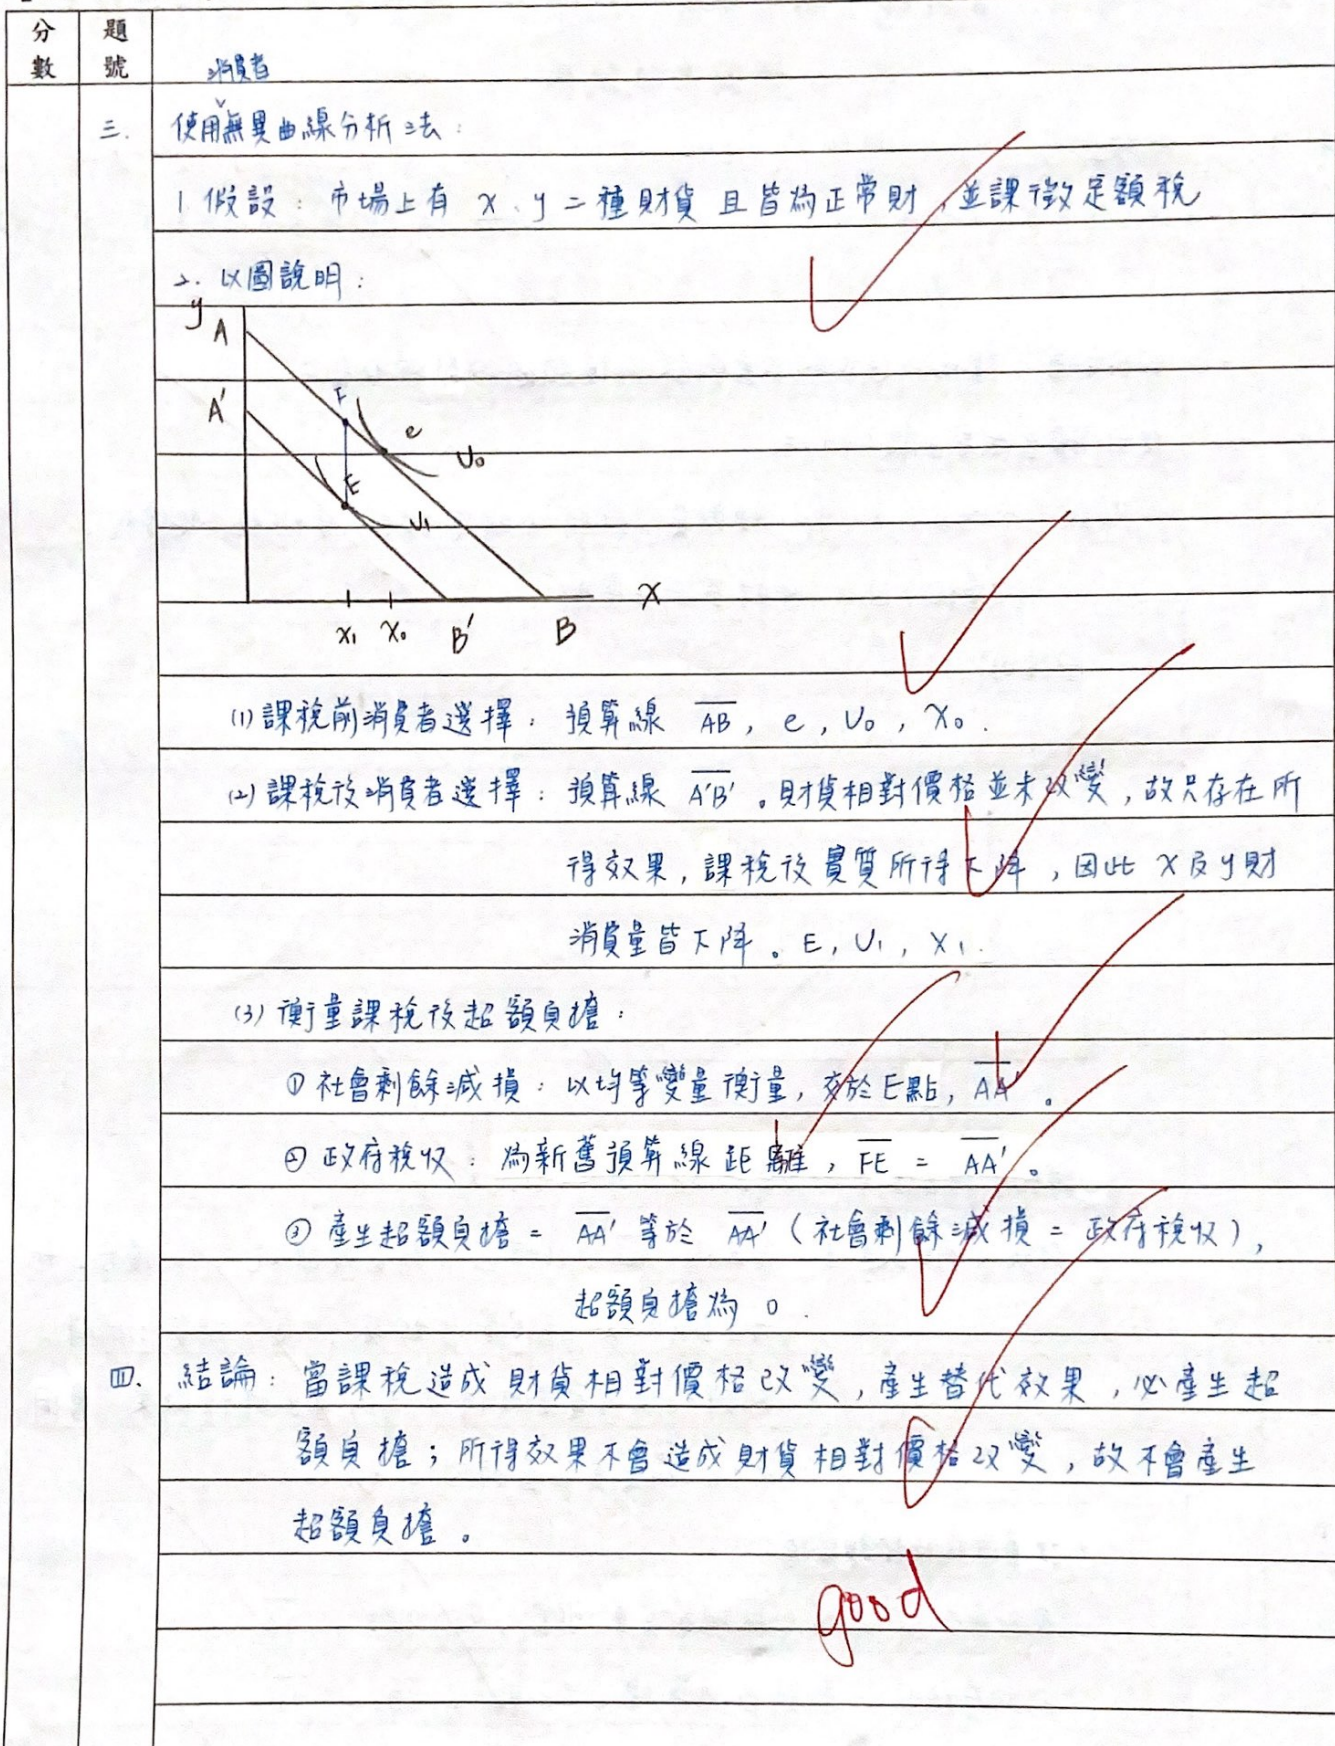 分數
題號
消費者
三. 使用無異曲線分析法:
1. 假設: 市場上有 x、y 二種財貨且皆為正常財,並課徵定額稅
2. 以圖說明:
y
A
A'
F
e
U₀
E
U₁
x
x₁ x₀ B' B
(1) 課稅前消費者選擇: 預算線 AB, e, U₀, X₀.
(2) 課稅後消費者選擇: 預算線 A'B'。財貨相對價格並未改變,故只存在所
得效果,課稅後實質所得下降,因此 X 及 y 財
消費量皆下降。E, U₁, X₁.
(3) 衡量課稅後超額負擔:
① 社會剩餘減損: 以均等變量衡量,交於E點, AA'。
② 政府稅收: 為新舊預算線距離, FE = AA'。
③ 產生超額負擔 = AA' 等於 AA' (社會剩餘減損 = 政府稅收),
超額負擔為 0.
四. 結論: 當課稅造成財貨相對價格改變,產生替代效果,必產生超
額負擔;所得效果不會造成財貨相對價格改變,故不會產生
超額負擔。
good